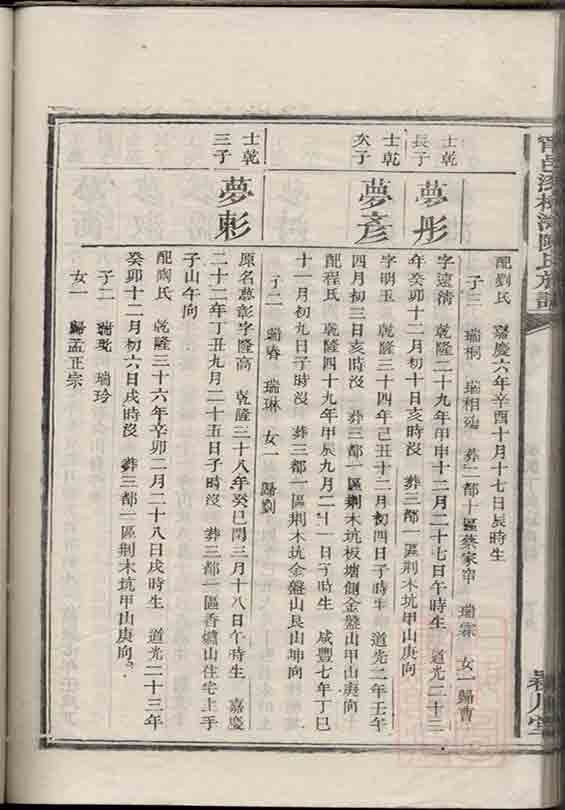 甯邑溪杉潭陳氏族譜
潁川堂
配劉氏 嘉慶六年辛酉十月十七日辰時生
子三 瑞桐 瑞相 殤 葬二都十區蔡家帘 瑞霖 女一歸曹
士乾
長子
夢彤
字遠清 乾隆二十九年甲申十二月二十七日午時生 道光二十三
年癸卯十二月初十日亥時沒 葬三都一區荆木坑甲山庚向
士乾
次子
夢彥
字明玉 乾隆三十四年己丑十二月初四日子時生 道光二年壬午
四月初三日亥時沒 葬三都一區荆木坑板塘側金盤山甲山庚向
配程氏 乾隆四十九年甲辰九月二十一日子時生 咸豐七年丁巳
十一月初九日子時沒 葬三都一區荆木坑金盤山艮山坤向
子二 瑞春 瑞琳 女一 歸劉
士乾
三子
夢彰
原名夢彰字隆高 乾隆三十八年癸巳閏三月十八日午時生 嘉慶
二十二年丁丑九月二十五日子時沒 葬三都一區香爐山住宅上手
子山午向
配陶氏 乾隆三十六年辛卯二月二十八日戌時生 道光二十三年
癸卯十二月初六日戌時沒 葬三都一區荆木坑甲山庚向
子二 瑞珖 瑞玲
女一 歸孟正宗